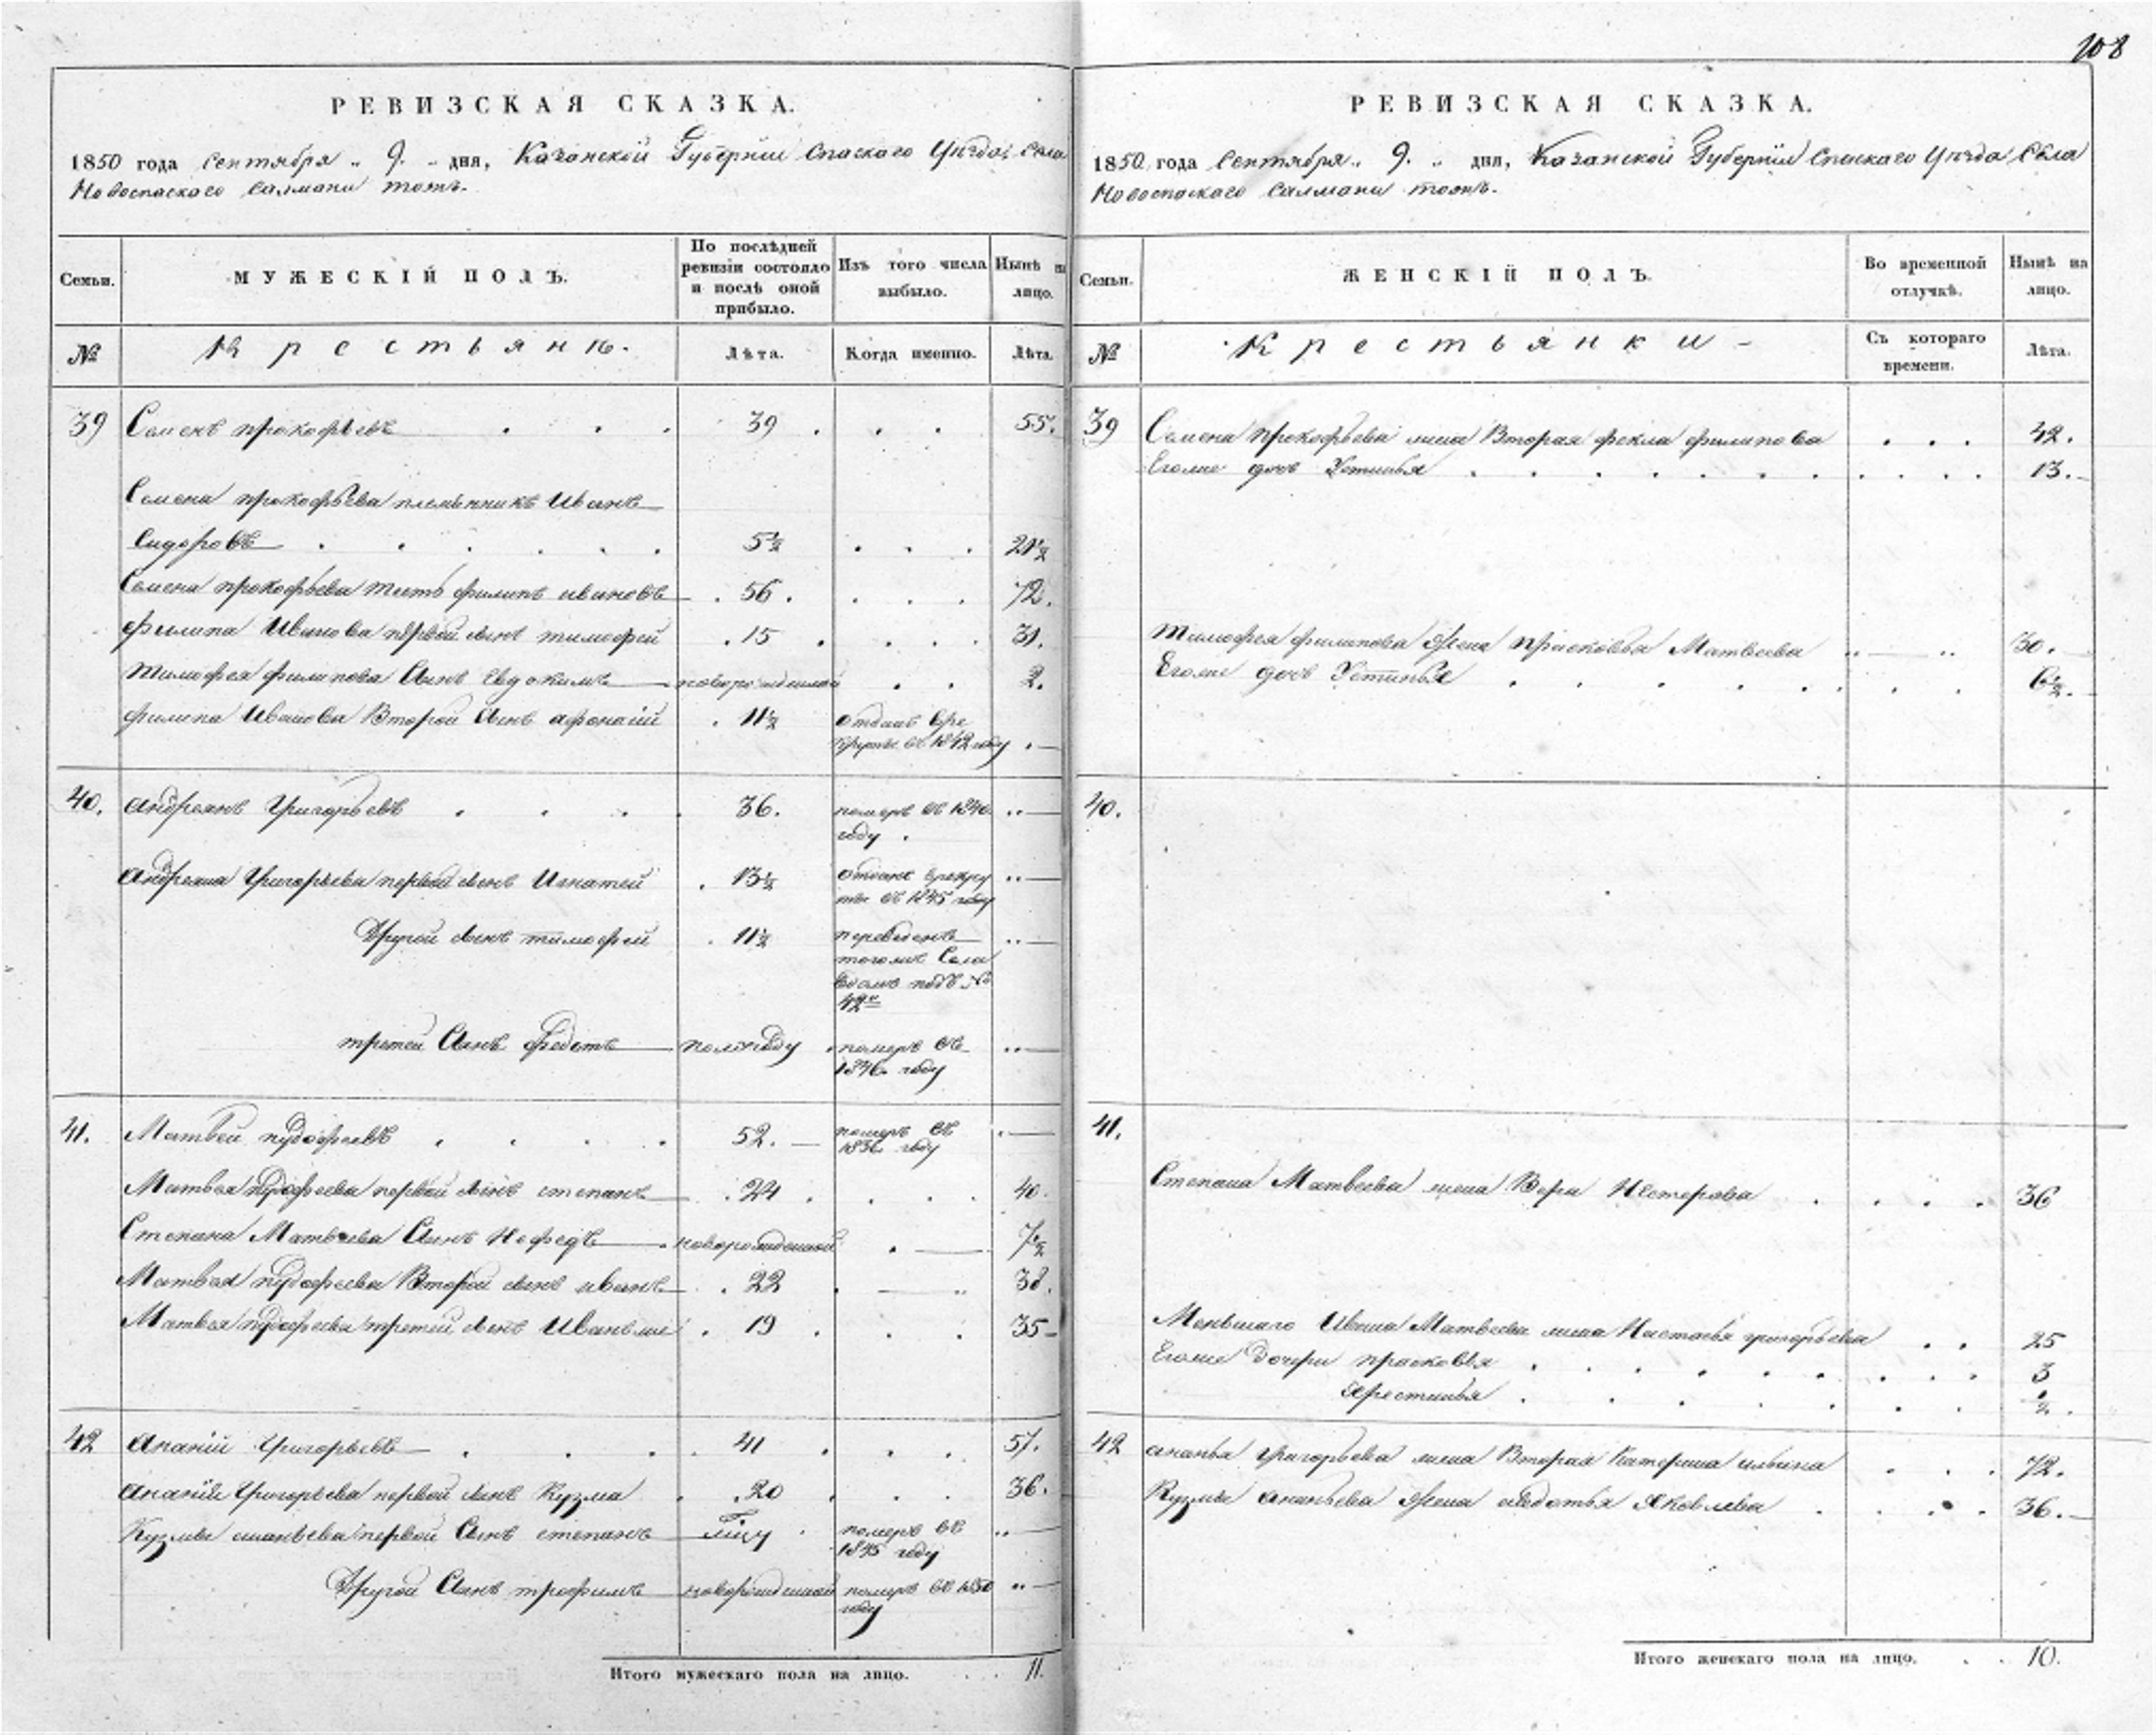 108
РЕВИЗСКАЯ СКАЗКА.
1850 года Сентября 9. дня, Казанской Губернии Спаскаго Уѣзда, Села
Новоспаскаго Салманы тожъ.
Семьи.
МУЖЕСКІЙ ПОЛЪ.
По послѣдней ревизіи состояло и послѣ оной прибыло.
Изъ того числа выбыло.
Нынѣ на лицо.
№
Крестьянъ.
Лѣта.
Когда именно.
Лѣта.
39 Семенъ прокофьевъ 39 55.
Семена прокофьева племянникъ Иванъ
Сидоровъ 5½ 21½
Семена прокофьева тесть филипъ ивановъ 56. 72.
филипа Иванова первой сынъ тимофей 15 31.
Тимофея филипова Сынъ Евдокимъ новорожденной 2.
филипа Иванова Второй Сынъ афонасій 11½ отданъ вре
круты въ 1842 году
40. андреянъ Григорьевъ 36. померъ въ 1840
году
андреяна Григорьева первой сынъ Игнатей 13½ отданъ врекру
ты въ 1845 году
Другой сынъ тимофей 11½ переведенъ
тогожъ Села
подъ №
42й
третей Сынъ федотъ полугоду померъ въ
1846. году
41. Матвей пудофеевъ 52. померъ въ
1836 году
Матвея пудофеева первой сынъ степанъ 24 40.
Степана Матвѣева Сынъ Нефедъ новорожденной 7½
Матвея пудофеева Второй сынъ иванъ 22 38.
Матвея пудофеева третей сынъ Иванъ 19 35
42 Ананій Григорьевъ 41 57.
Ананія Григорьева первой сынъ Кузма 20 36.
Кузмы ананьева первой Сынъ степанъ померъ въ
1845 году
Другой Сынъ трофимъ новорожденной померъ въ 1850
году
Итого мужескаго пола на лицо. 11.
РЕВИЗСКАЯ СКАЗКА.
1850 года Сентября 9. дня, Казанской Губерніи Спаскаго Уѣзда Села
Новоспаскаго Салманы тожъ.
Семьи.
ЖЕНСКІЙ ПОЛЪ.
Во временной отлучкѣ.
Нынѣ на лицо.
№
Крестьянки
Съ котораго времени.
Лѣта.
39 Семена Прокофьева жена Вторая фекла филипова 42.
Егоже дочь Устинья 13.
Тимофея филипова Жена Прасковья Матвеева 30.
Егоже дочь Устинья 6½.
40.
41.
Степана Матвеева жена Вера Нестерова 36
Меньшаго Ивана Матвеева жена Настасья григорьева 25
Егоже Дочери прасковья 3
Хрестинья ½.
42 ананья Григорьева жена Вторая Катерина ильина 72.
Кузмы ананьева Жена авдотья Яковлева 36.
Итого женскаго пола на лицо. 10.